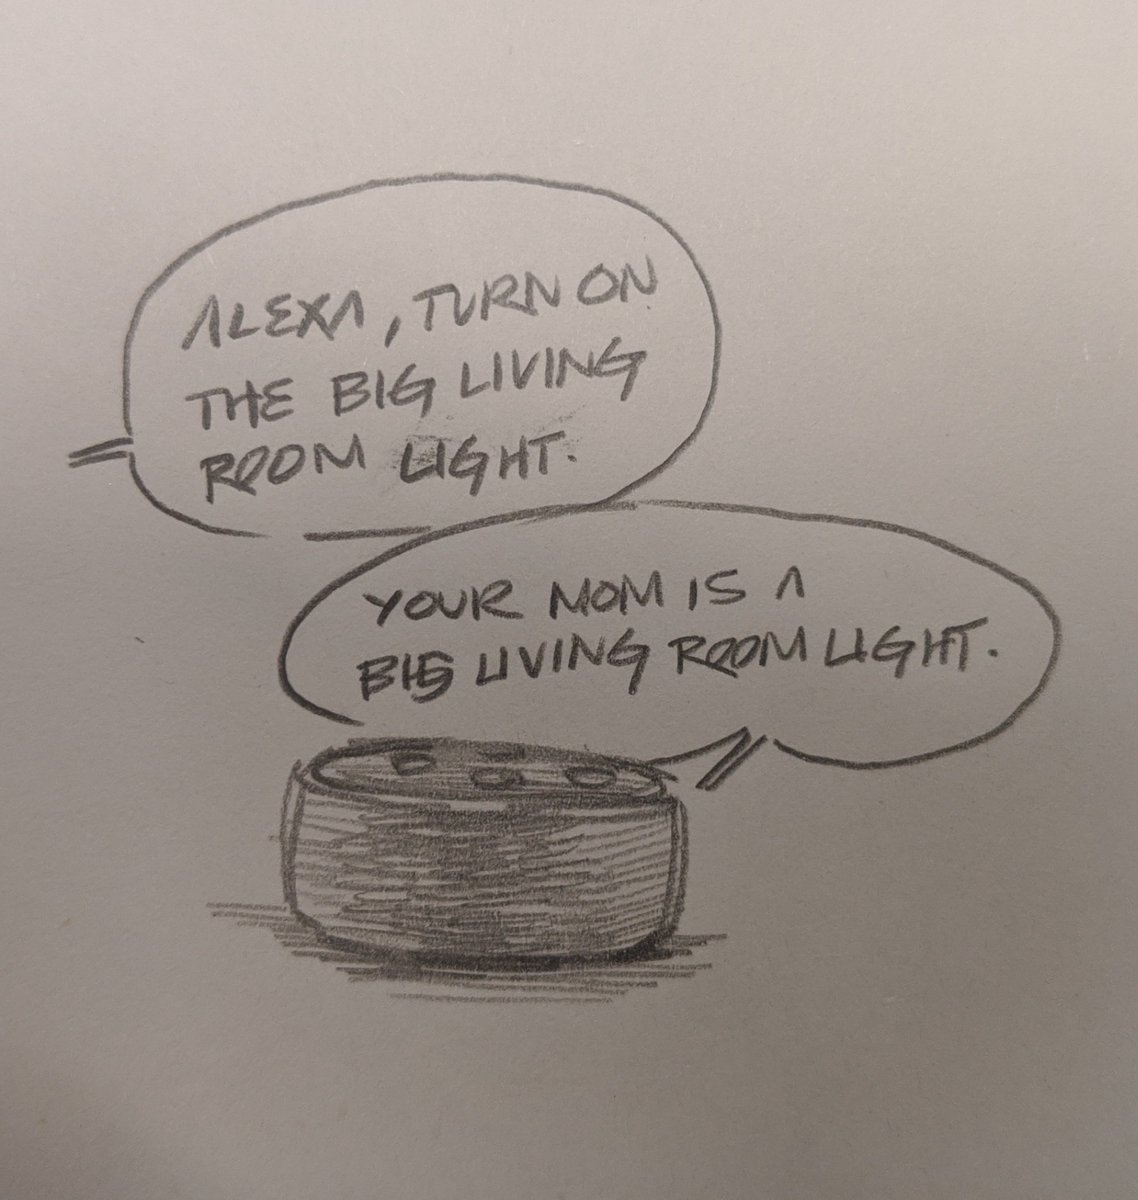 ALEXA, TURN ON
THE BIG LIVING
ROOM LIGHT.
YOUR MOM IS A
BIG LIVING ROOM LIGHT.